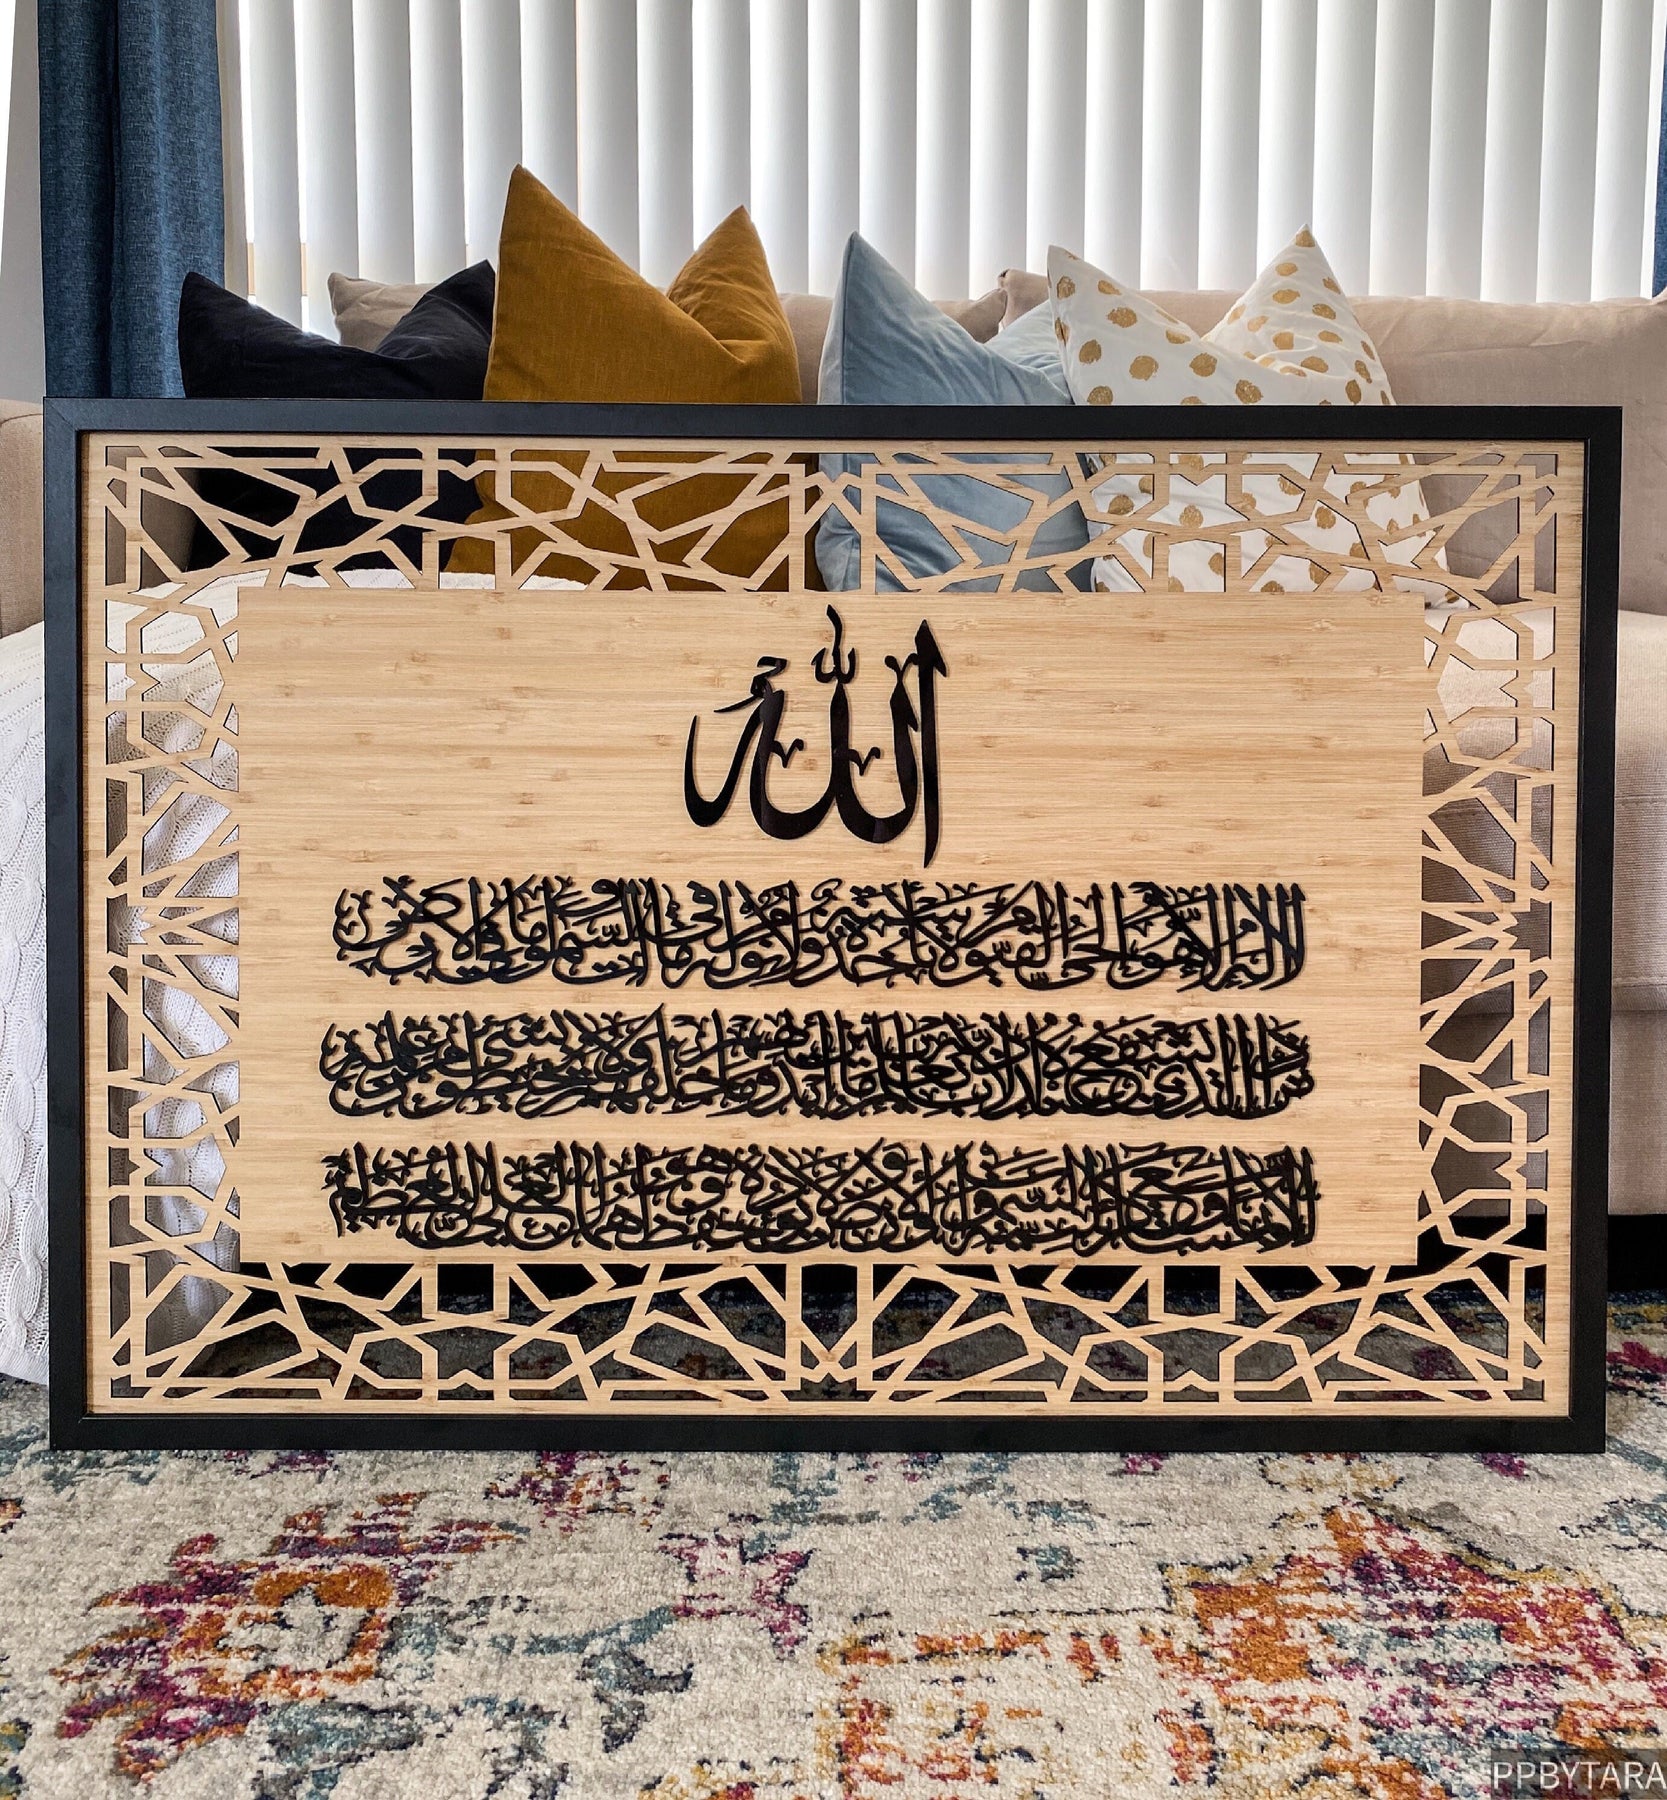 الله
لا إله إلا هو الحي القيوم لا تأخذه سنة ولا نوم له ما في السموات وما في الأرض من
ذا الذي يشفع عنده إلا بإذنه يعلم ما بين أيديهم وما خلفهم ولا يحيطون بشيء من علمه
إلا بما شاء وسع كرسيه السموات والأرض ولا يؤده حفظهما وهو العلي العظيم
PPBYTARA